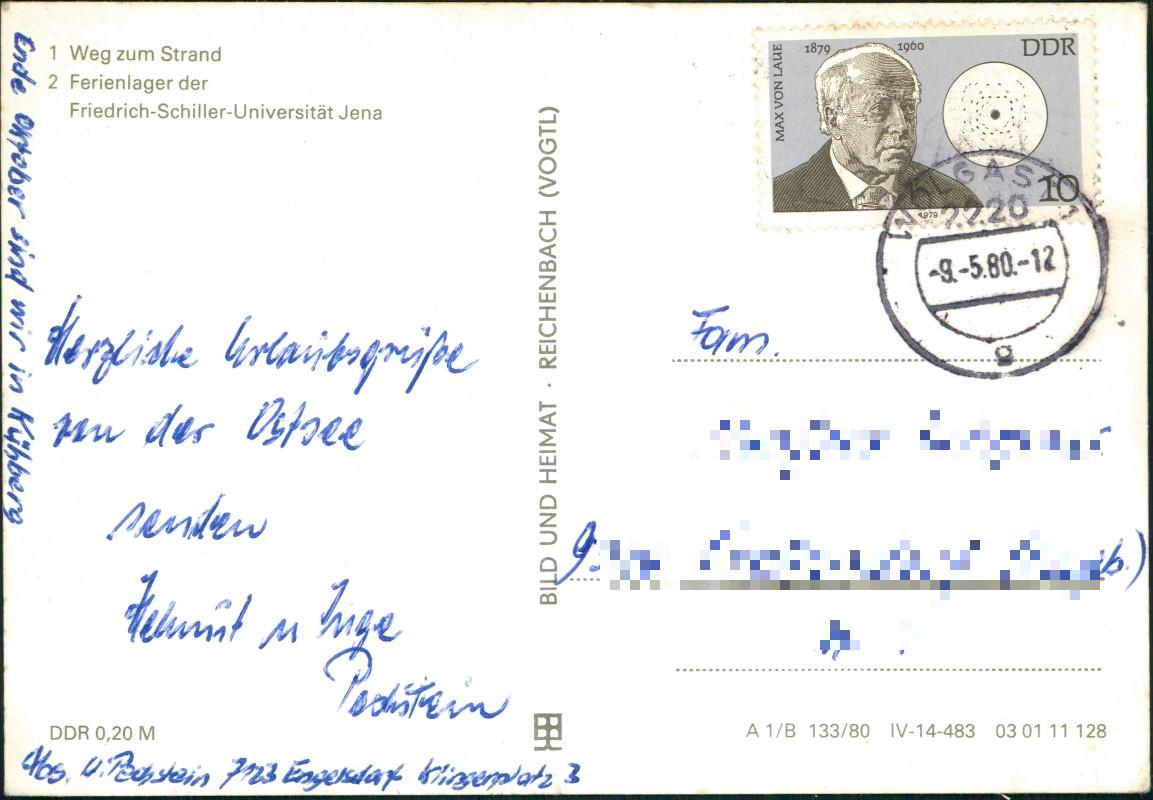 1 Weg zum Strand
2 Ferienlager der
Friedrich-Schiller-Universität Jena
Ende Oktober sind wir in Kühberg
Herzliche Urlaubsgrüße
von der Ostsee
senden
Helmut u Inge
Pechstein
DDR 0,20 M
Abs. H. Pechstein 7123 Engelsdorf Klingenplatz 3
BILD UND HEIMAT · REICHENBACH (VOGTL)
MAX VON LAUE
1879 1960 DDR
10
1979
WOLGAST
2220
-9.-5.80.-12
g
Fam.
A 1/B 133/80 IV-14-483 03 01 11 128